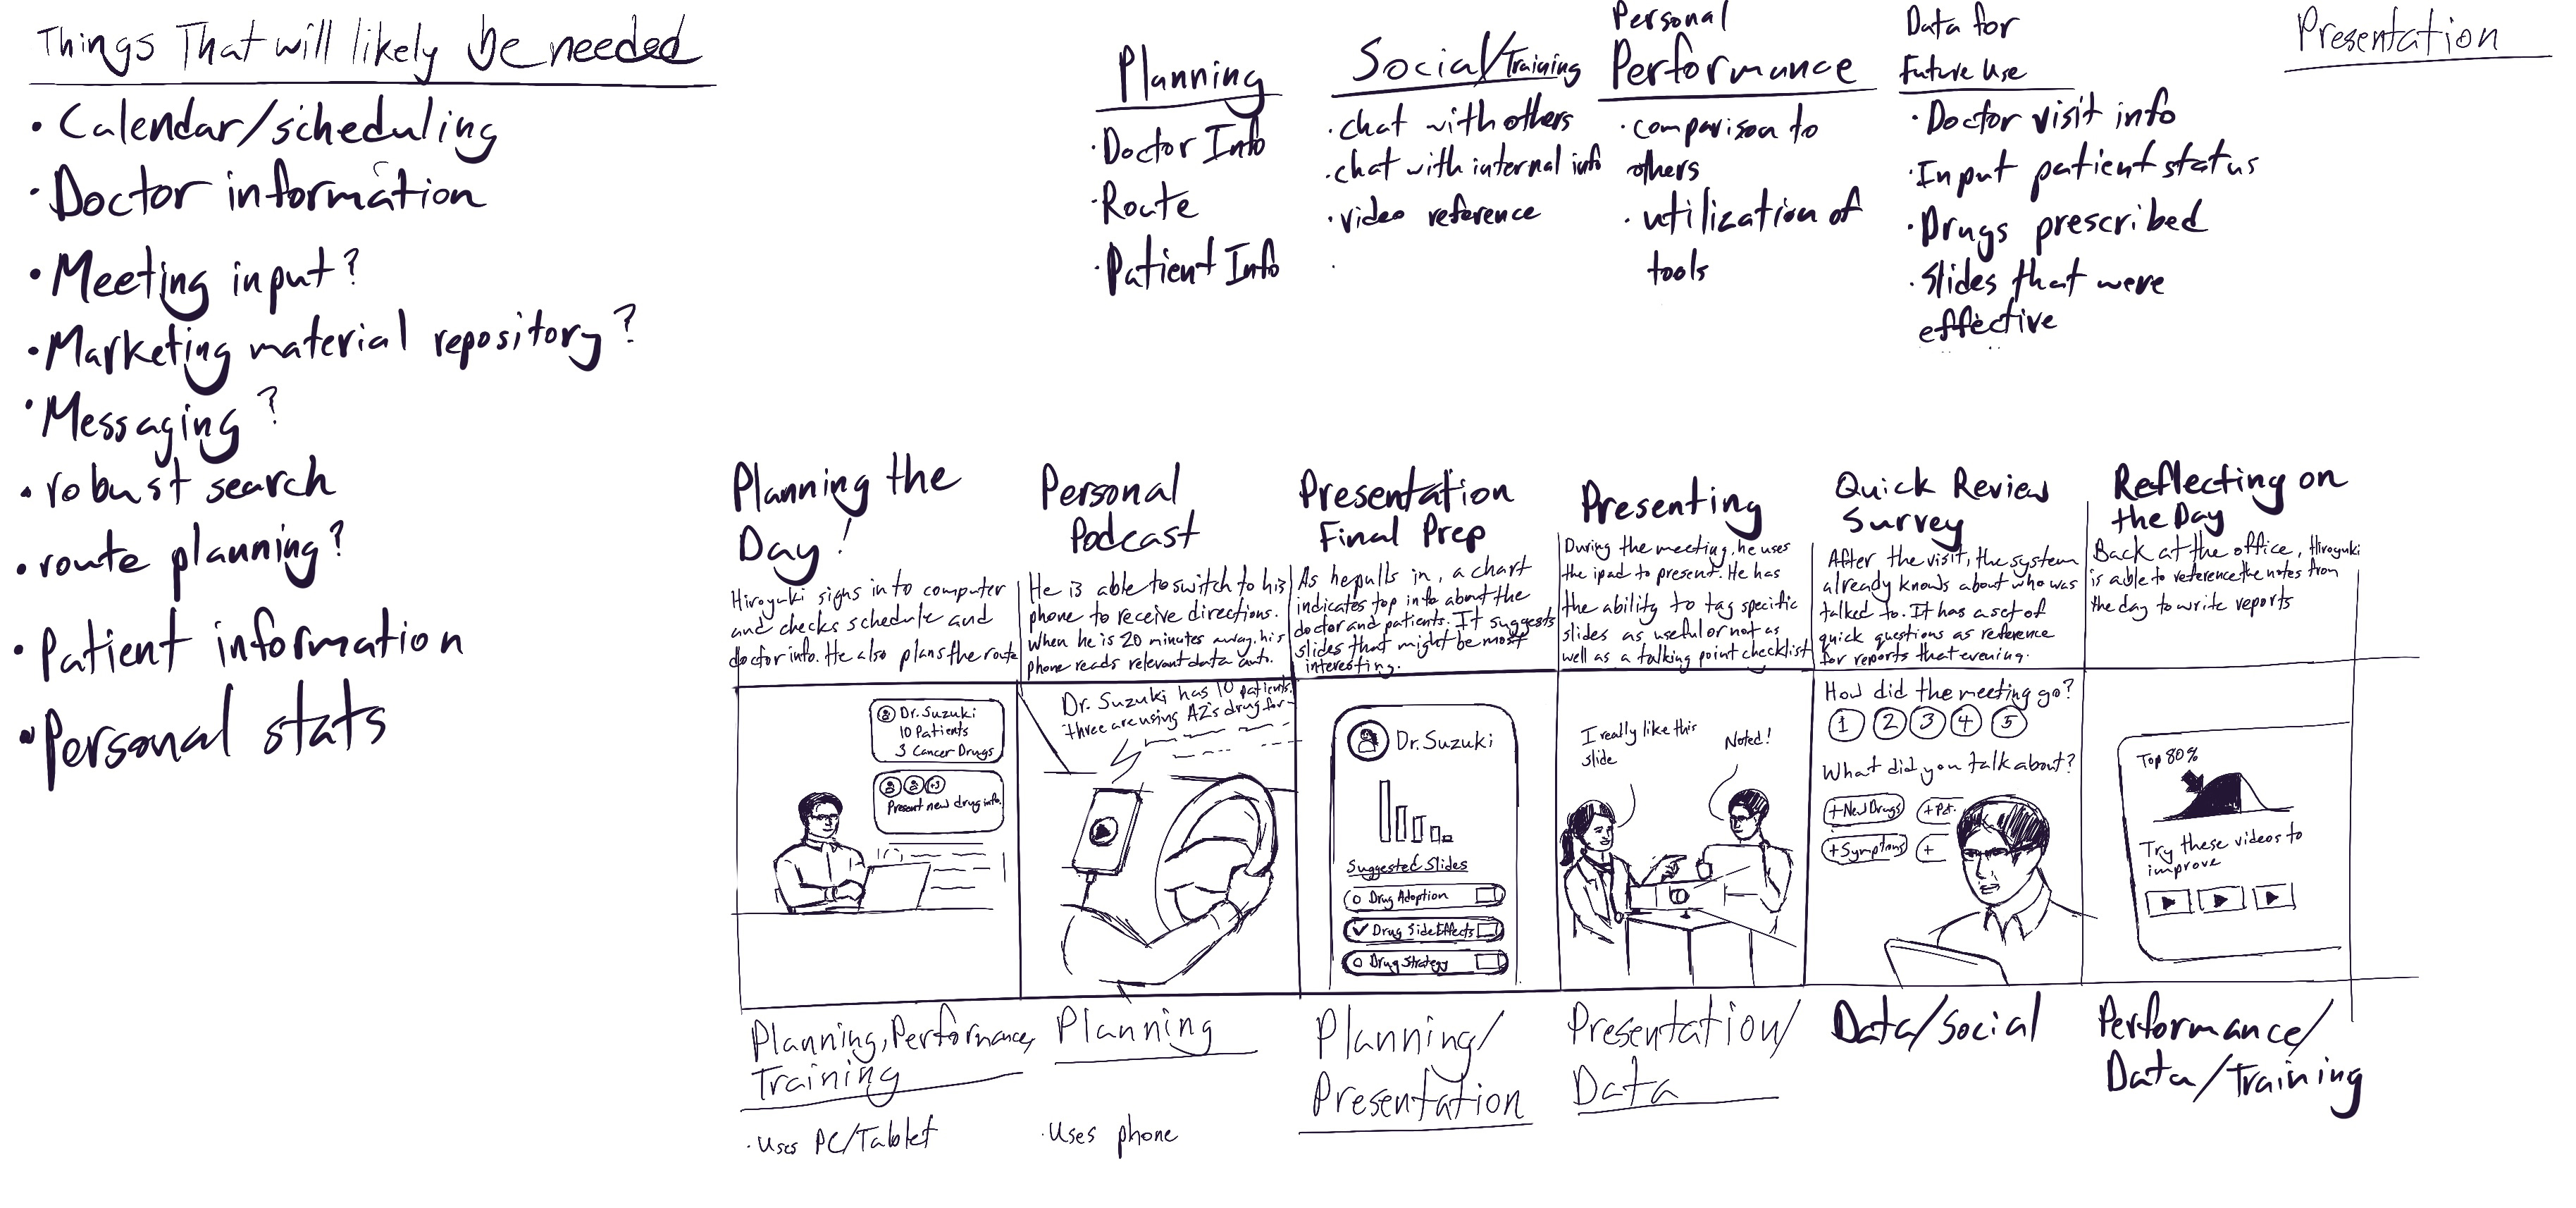 Things That will likely be needed
• Calendar/scheduling
• Doctor information
• Meeting input?
• Marketing material repository?
• Messaging?
• robust search
• route planning?
• Patient information
• Personal stats
Planning
• Doctor Info
• Route
• Patient Info
Social/Training
• chat with others
• chat with internal info
• video reference
Personal
Performance
• comparison to
others
• utilization of
tools
Data for
Future Use
• Doctor visit info
• Input patient status
• Drugs prescribed
• Slides that were
effective
Presentation
Planning the
Day!
Hiroyuki signs into computer
and checks schedule and
doctor info. He also plans the route
Dr. Suzuki
10 Patients
3 Cancer Drugs
+3
Present new drug info.
Planning, Performance,
Training
• Uses PC/Tablet
Personal
Podcast
He is able to switch to his
phone to receive directions.
When he is 20 minutes away, his
phone reads relevant data out.
Dr. Suzuki has 10 patients.
three are using AZ's drug for-
Planning
• Uses phone
Presentation
Final Prep
As he pulls in, a chart
indicates top info about the
doctor and patients. It suggests
slides that might be most
interesting.
Dr. Suzuki
Suggested Slides
Drug Adoption
Drug Side Effects
Drug Strategy
Planning/
Presentation
Presenting
During the meeting, he uses
the ipad to present. He has
the ability to tag specific
slides as useful or not as
well as a talking point checklist
I really like this
slide
Noted!
Presentation/
Data
Quick Review
Survey
After the visit, the system
already knows about who was
talked to. It has a set of
quick questions as reference
for reports that evening.
How did the meeting go?
1 2 3 4 5
What did you talk about?
+New Drugs +Pat.
+Symptoms +
Data/Social
Reflecting on
the Day
Back at the office, Hiroyuki
is able to reference the notes from
the day to write reports
Top 80%
Try these videos to
improve
Performance/
Data/Training